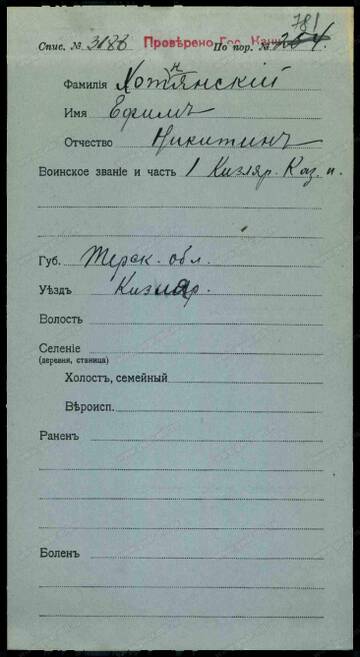 781
Спис. № 3186 Провѣрено Гос. По пор. № 204
Фамилія Хотянскій
н
Имя Ефимъ
Отчество Никитинъ
Воинское званіе и часть 1 Кизляр. Каз. п.
Губ. Терск. обл.
Уѣздъ Кизляр.
Волость
Селеніе
(деревня, станица)
Холостъ, семейный
Вѣроисп.
Раненъ
Боленъ